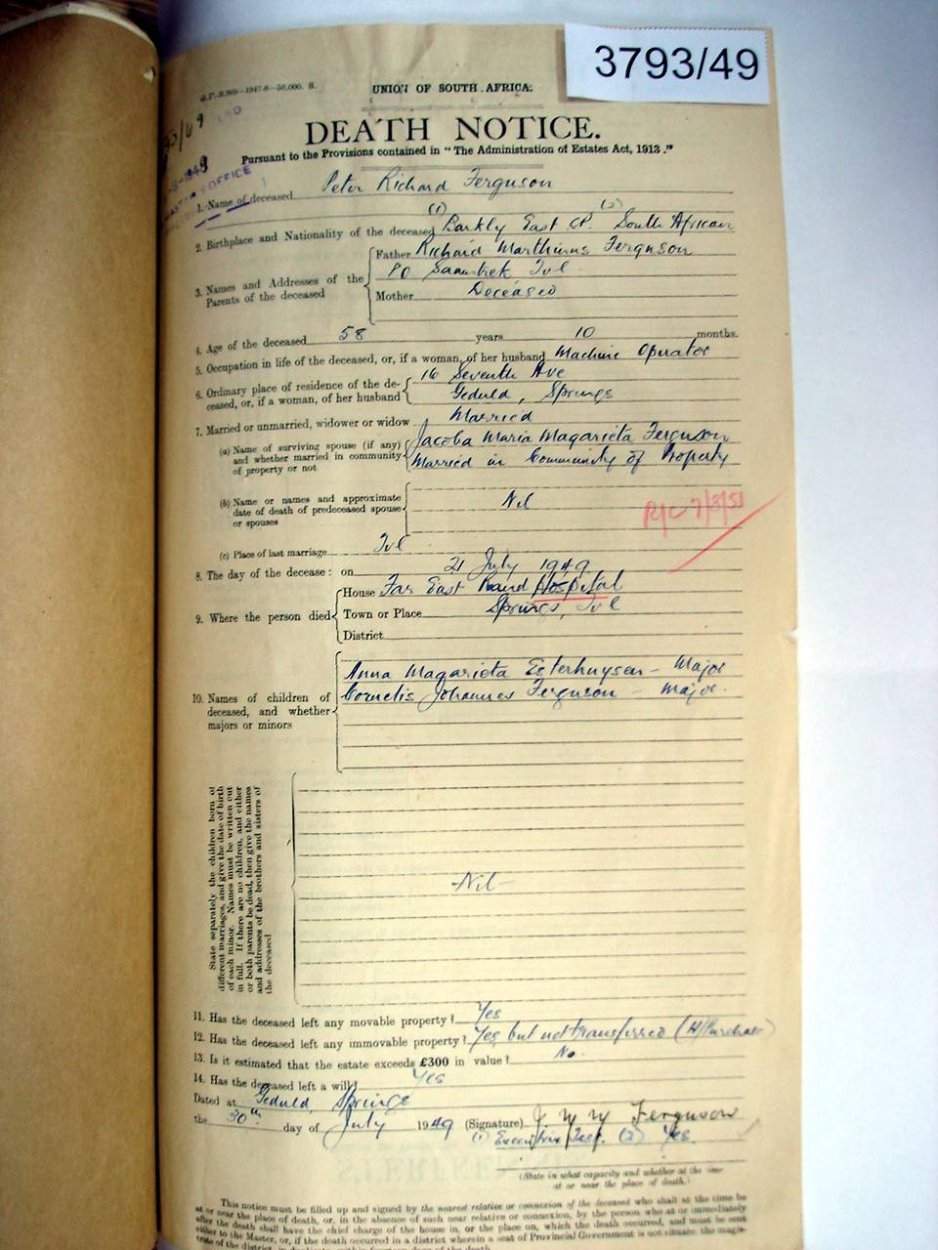 3793/49
G.P.-S.969-1947-8-50,000. S.
UNION OF SOUTH AFRICA.
DEATH NOTICE.
Pursuant to the Provisions contained in "The Administration of Estates Act, 1913."
1. Name of deceased Peter Richard Ferguson
(1) (2)
2. Birthplace and Nationality of the deceased Barkly East CP. South African
3. Names and Addresses of the Parents of the deceased
Father Richard Marthinus Ferguson
PO Saambek Tvl
Mother Deceased
4. Age of the deceased 58 years 10 months.
5. Occupation in life of the deceased, or, if a woman, of her husband Machine Operator
6. Ordinary place of residence of the de-
ceased, or, if a woman, of her husband
16 Seventh Ave
Geduld, Springs
7. Married or unmarried, widower or widow Married
(a) Name of surviving spouse (if any)
and whether married in community
of property or not
Jacoba Maria Magarieta Ferguson
Married in Community of Property
(b) Name or names and approximate
date of death of predeceased spouse
or spouses
Nil
(c) Place of last marriage Tvl
8. The day of the decease: on 21 July 1949
9. Where the person died
House Far East Rand Hospital
Town or Place Springs, Tvl
District
10. Names of children of
deceased, and whether
majors or minors
Anna Magarieta Esterhuysen - Major
Cornelis Johannes Ferguson - Major.
State separately the children born of
different marriages, and give the date of birth
of each minor. Names must be written out
in full. If there are no children, and either
or both parents be dead, then give the names
and addresses of the brothers and sisters of
the deceased
-Nil-
11. Has the deceased left any movable property? Yes
12. Has the deceased left any immovable property? Yes but not transferred (H/Purchase)
13. Is it estimated that the estate exceeds £300 in value? No.
14. Has the deceased left a will? Yes
Dated at Geduld, Springs
the 30th day of July 1949 (Signature) J M M Ferguson
(1) Executrix (2) Yes
(State in what capacity and whether at the time
at or near the place of death.)
This notice must be filled up and signed by the nearest relative or connection of the deceased who shall at the time be
at or near the place of death, or, in the absence of such near relative or connexion, by the person who at or immediately
after the death shall have the chief charge of the house in, or the place on, which the death occurred, and must be sent
either to the Master, or, if the death occurred in a district wherein a seat of Provincial Government is not situate the magis-
trate of the district,